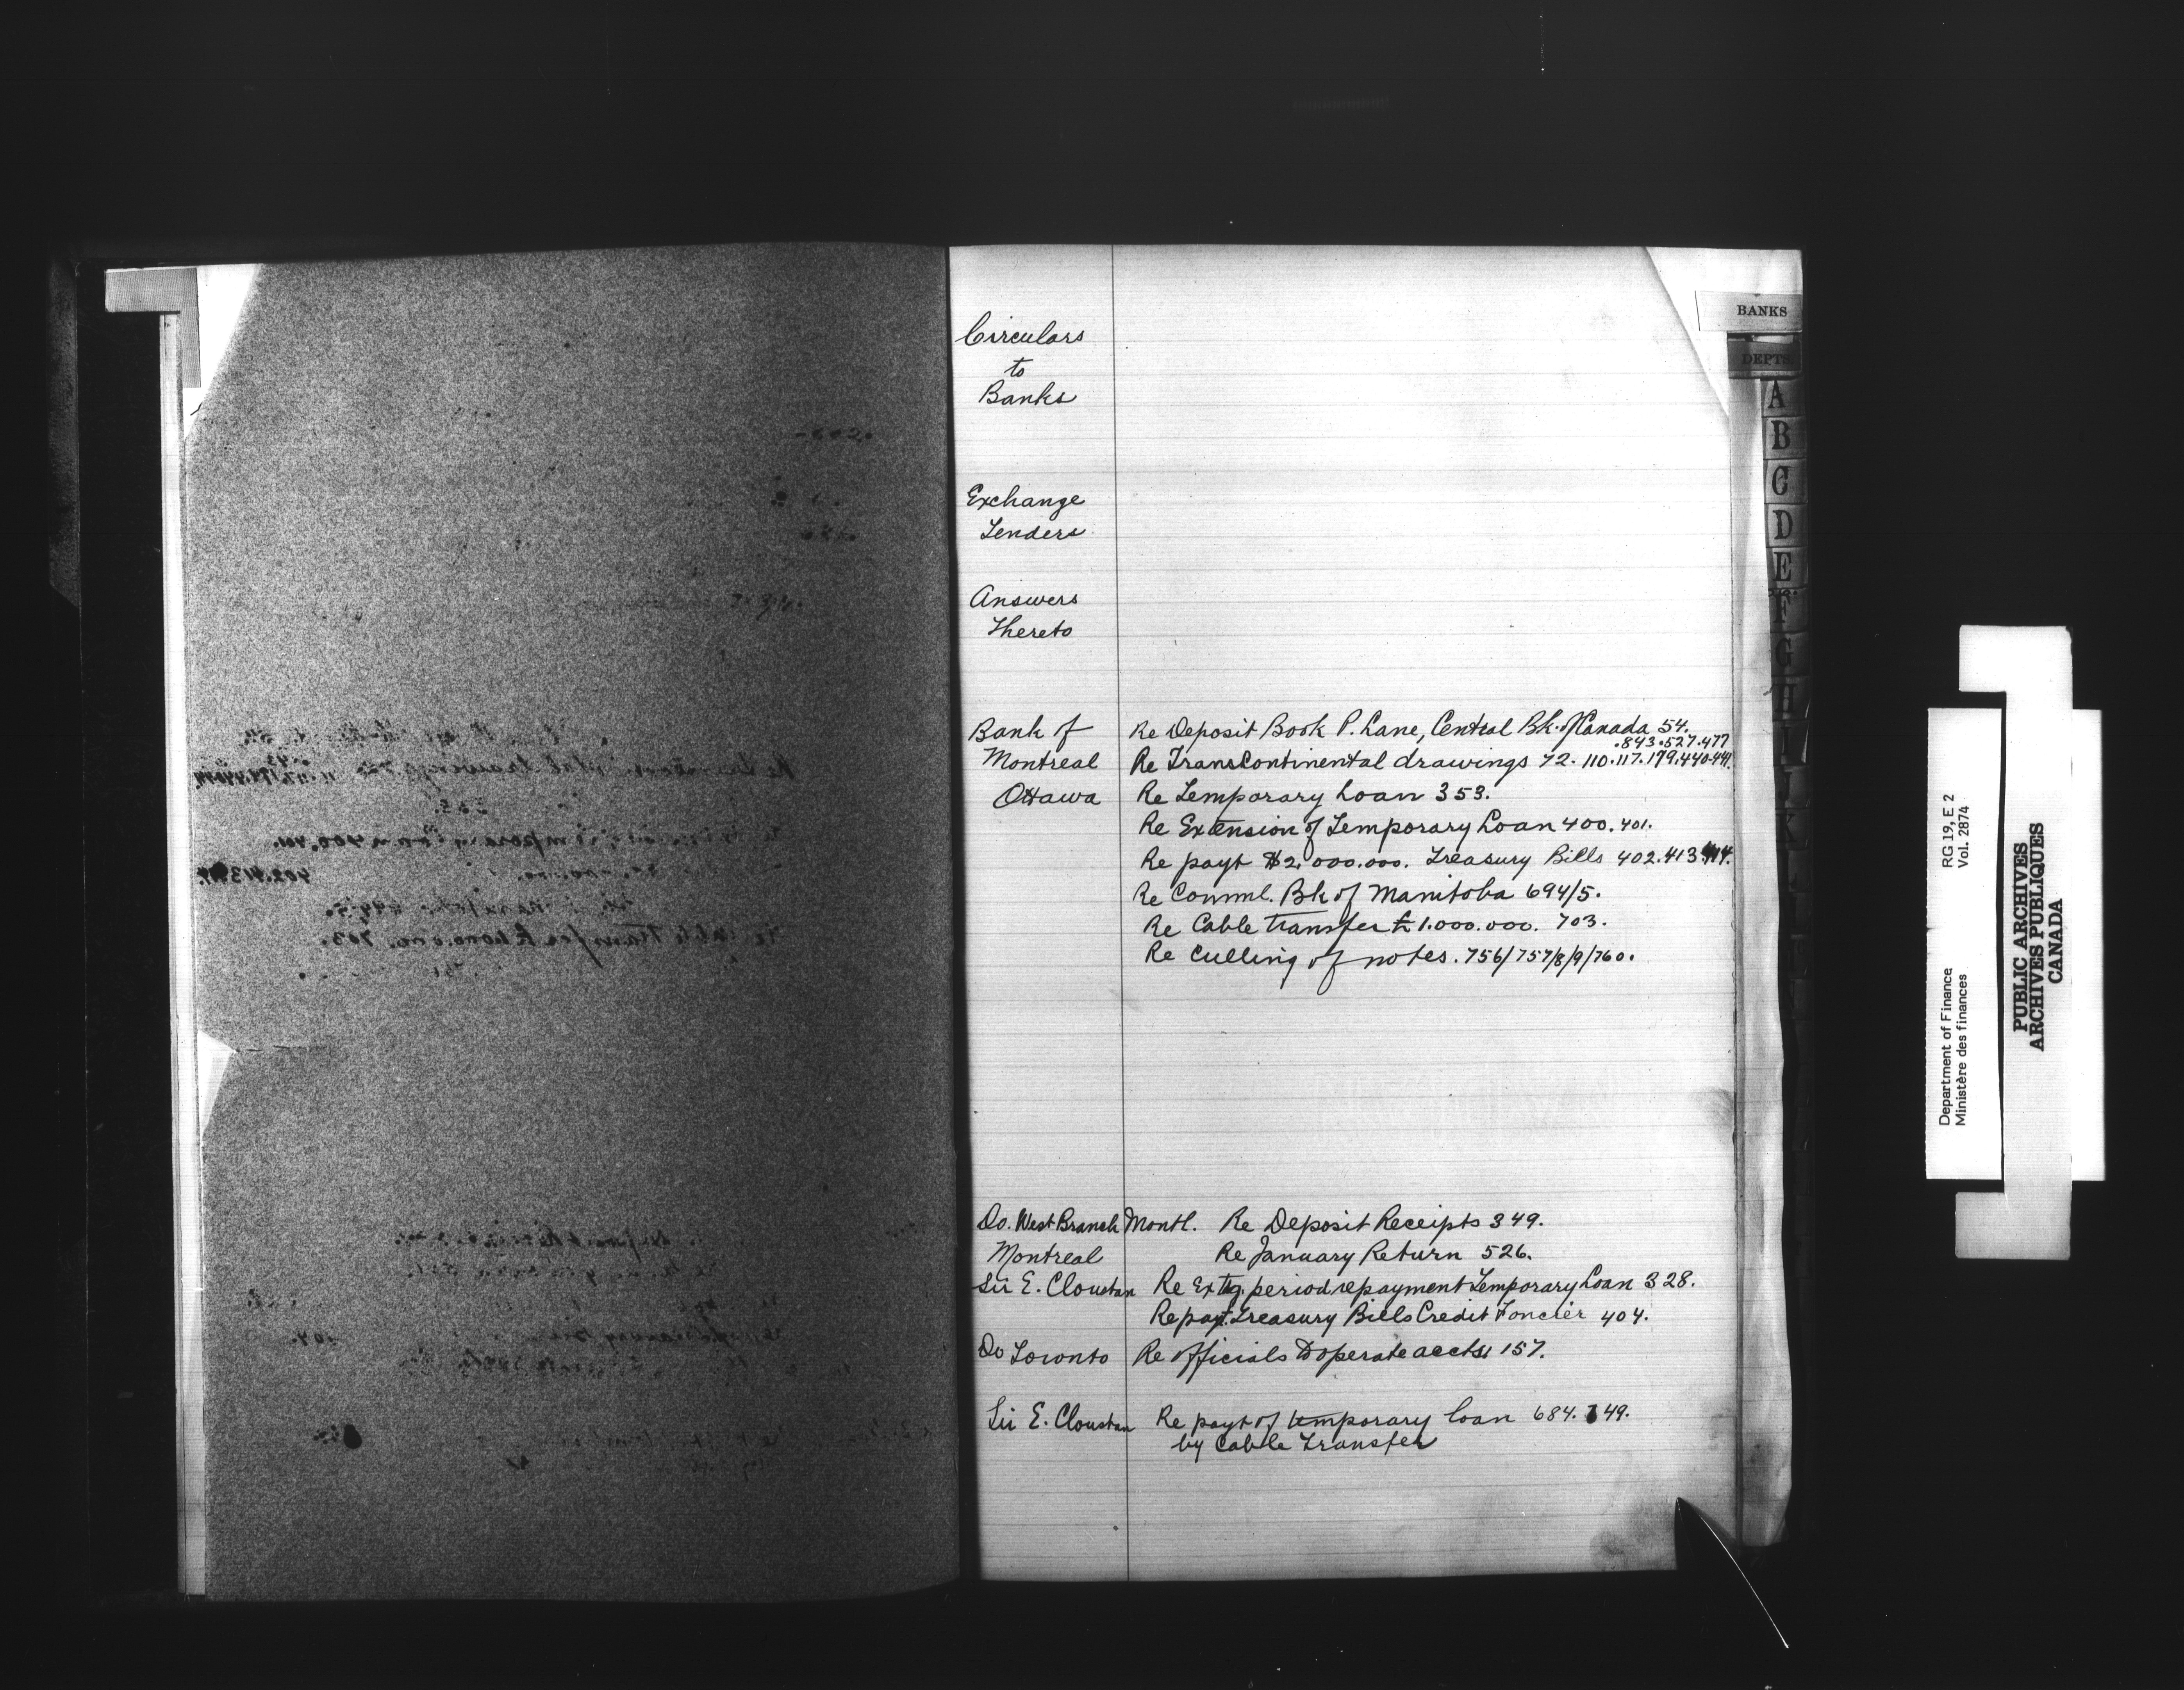 BANKS
DEPTS
A
B
C
D
E
F
G
H
I
J
K
L
Circulars
to
Banks
Exchange
Tenders
Answers
Thereto
Bank of Re Deposit Book P. Lane, Central Bk. of Canada 54.
.843.527.477
Montreal Re TransContinental drawings 72. 110.117.179.440.441.
Ottawa Re Temporary Loan 353.
Re Extension of Temporary Loan 400.401.
Re payt $2,000.000. Treasury Bills 402.413.414.
Re Comml. Bk of Manitoba 694/5.
Re Cable transfer £1.000.000. 703.
Re Culling of notes. 756/757/8/9/760.
Do. West Branch Montl. Re Deposit Receipts 349.
Montreal Re January Return 526.
Sir E. Clouston Re Extg. period repayment Temporary Loan 328.
Re payt. Treasury Bills Credit Foncier 404.
Do Toronto Re Officials to operate accts 157.
Sir E. Clouston Re payt of temporary loan 684. 749.
by Cable Transfer
Department of Finance RG 19, E 2
Ministère des finances Vol. 2874
PUBLIC ARCHIVES
ARCHIVES PUBLIQUES
CANADA